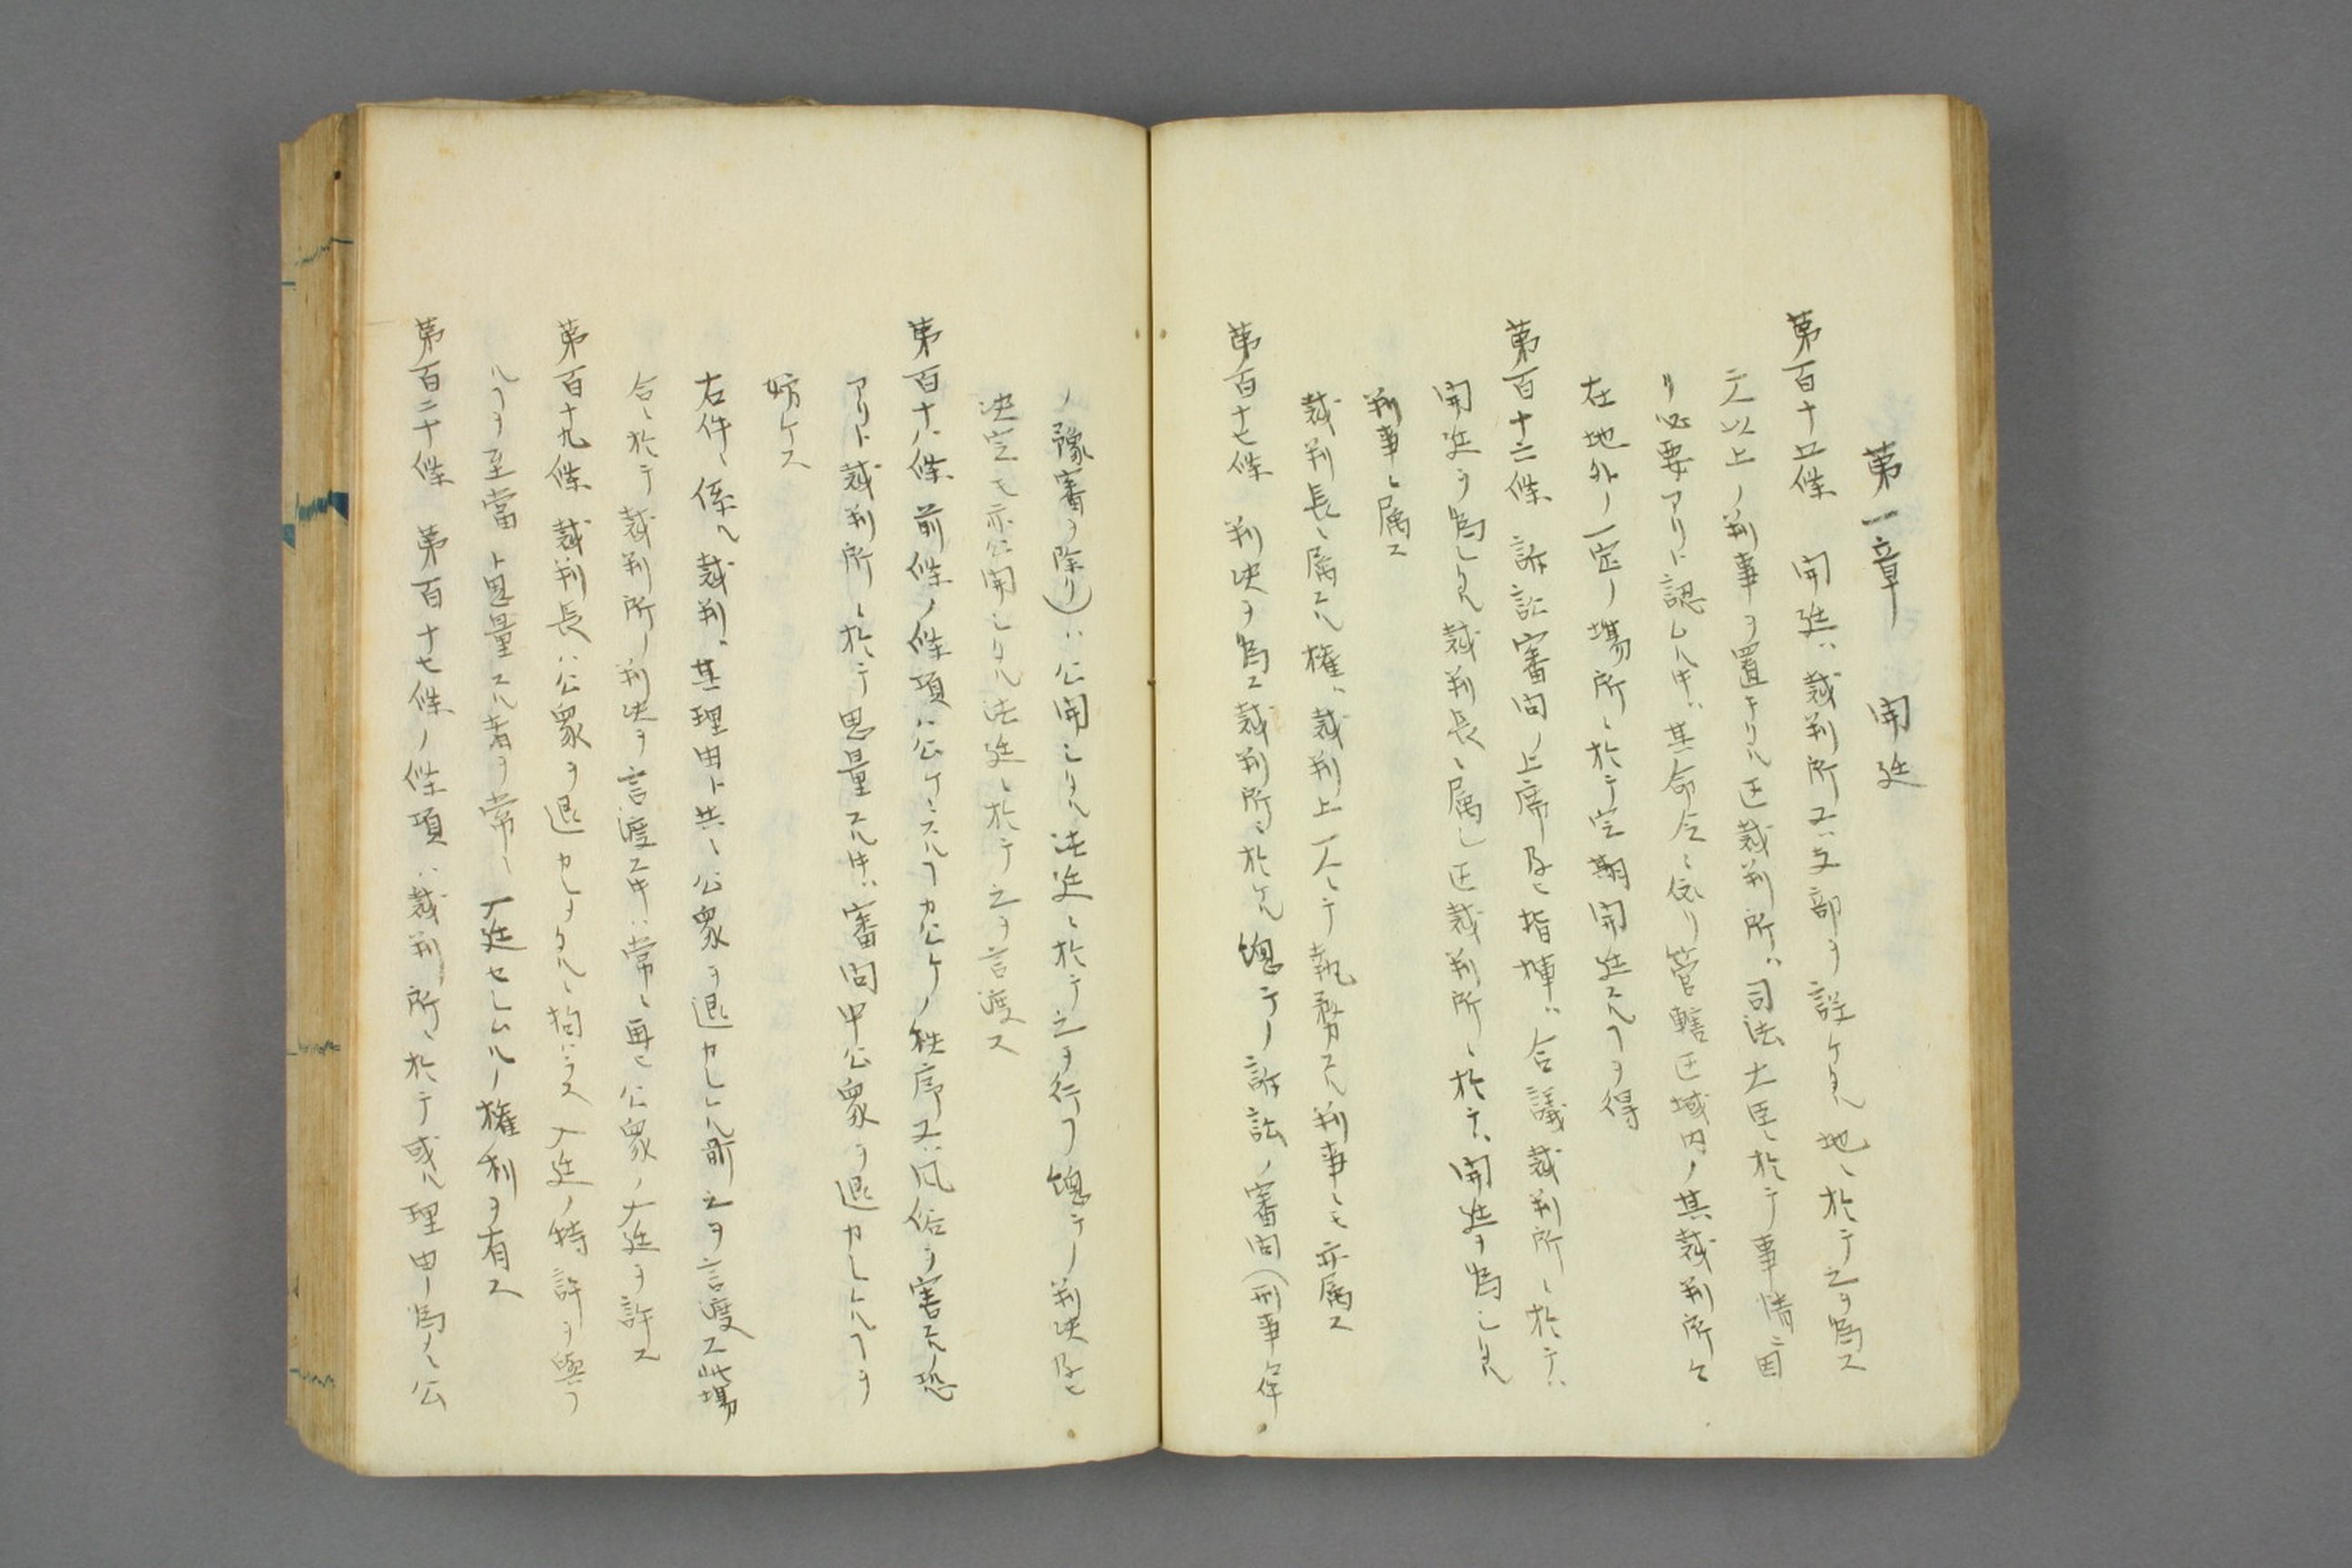 第一章 開廷
第百十五条 開廷ハ裁判所又ハ支部ヲ設ケタル地ニ於テ之ヲ為ス
二人以上ノ判事ヲ置キタル区裁判所ハ司法大臣ニ於テ事情ニ因
リ必要アリト認ムル时ハ其命令ニ依リ管轄区域内ノ其裁判所々
在地外ノ一定ノ場所ニ於テ定期開廷スルヿヲ得
第百十六条 訴訟審問ノ上席及ヒ指揮ハ合議裁判所ニ於テハ
開廷ヲ為シタル裁判長ニ属シ区裁判所ニ於テハ開廷ヲ為シタル
判事ニ属ス
裁判長ニ属スル権ハ裁判上一人ニテ執務スル判事ニモ亦属ス
第百十七条 判決ヲ為ス裁判所ニ於ケル總テノ訴訟ノ審問(刑事件
ノ豫審ヲ除ク)ハ公開シタル法廷ニ於テ之ヲ行フ總テノ判決及ヒ
決定モ亦公開シタル法廷ニ於テ之ヲ言渡ス
第百十八条 前条ノ条項ハ公ケニスルヿカ公ケノ秩序又ハ风俗ヲ害スル恐
アリト裁判所ニ於テ思量スル时ハ審問中公衆ヲ退カシムルヿヲ
妨ケス
右件ニ係ル裁判ハ其理由ト共ニ公衆ヲ退カシムル前之ヲ言渡ス此場
合ニ於テ裁判所ノ判決ヲ言渡ス时ハ常ニ再ヒ公衆ノ入廷ヲ許ス
第百十九条 裁判長ハ公衆ヲ退カシメタルニ拘ハラス入廷ノ特許ヲ與フ
ルヿヲ至當ト思量スル者ヲ常ニ入廷セシムルノ権利ヲ有ス
第百二十条 第百十七条ノ条項ハ裁判所ニ於テ或ル理由ノ為メニ公